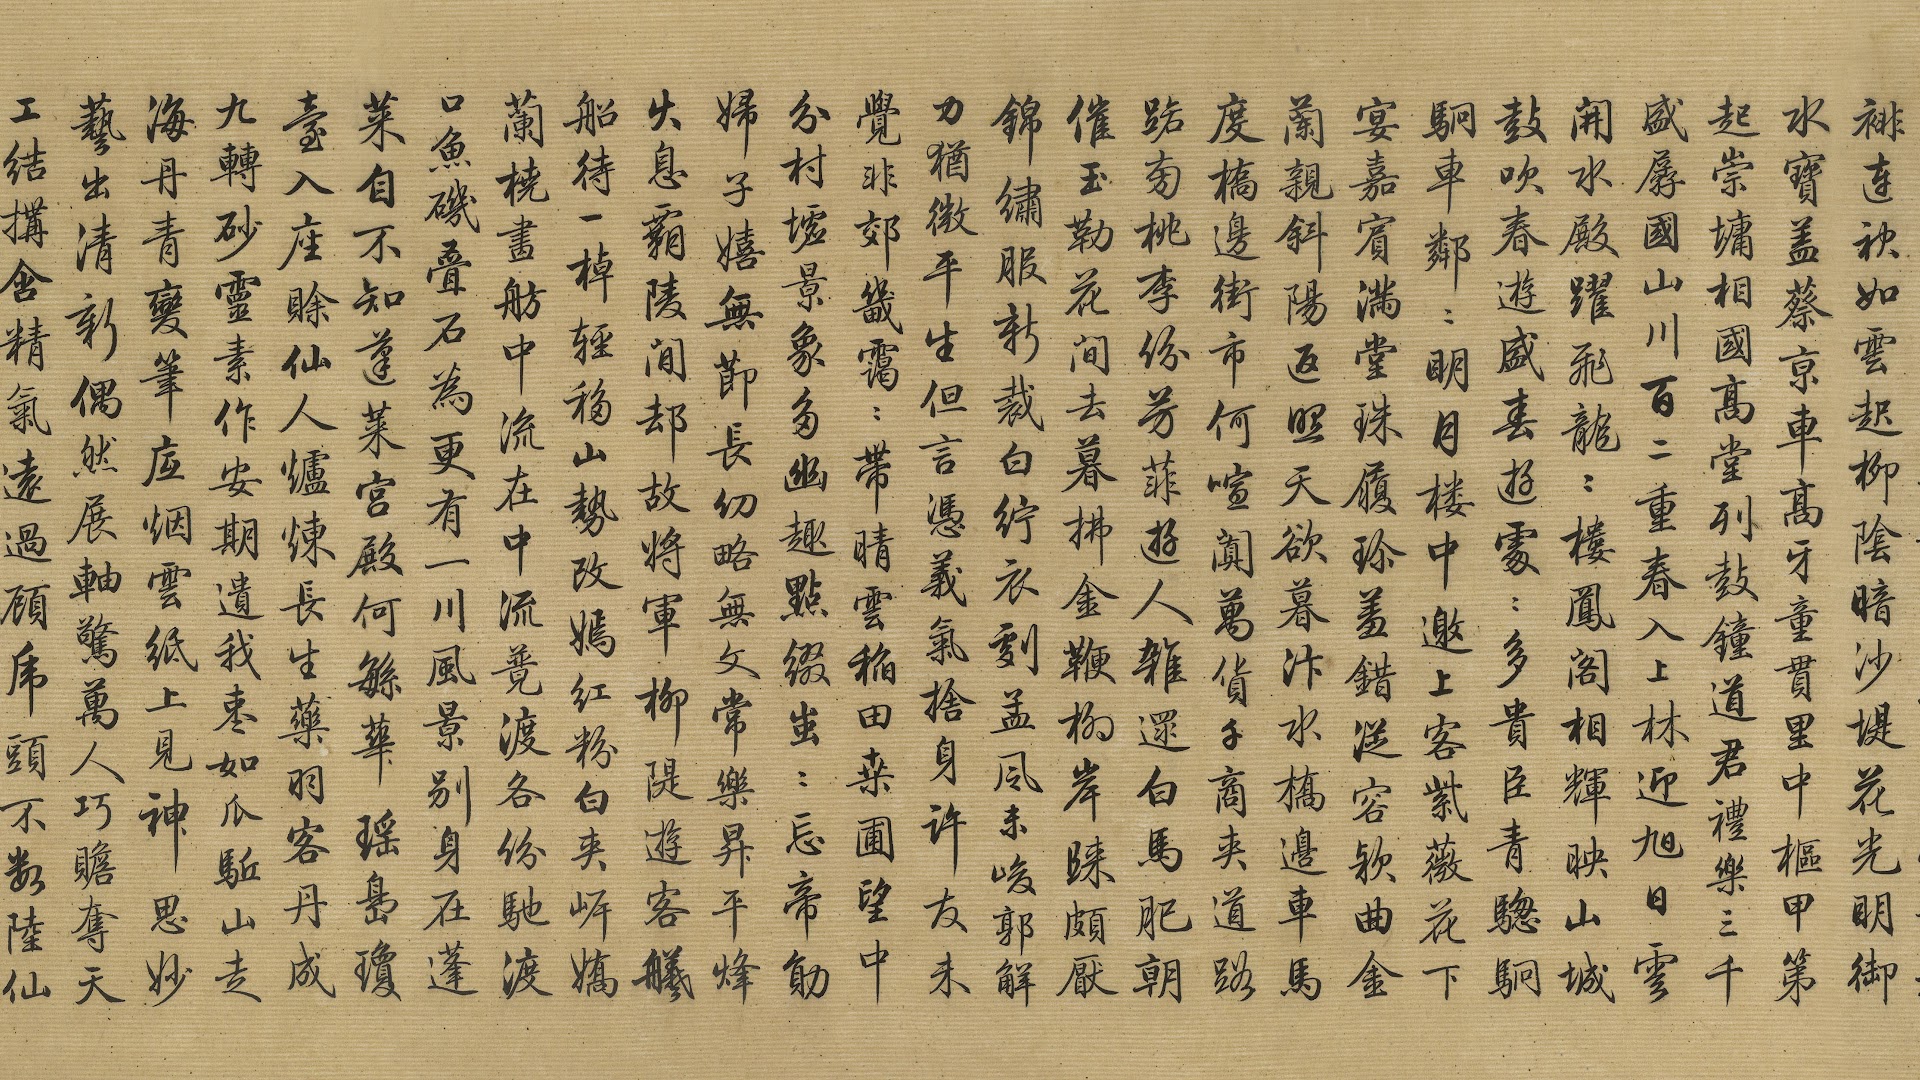 裶連袂如雲起柳陰暗沙堤花光明御
水寶盖蔡京車髙牙童貫里中樞甲第
起崇墉相國髙堂列鼓鐘道君禮樂三千
盛孱國山川百二重春入上林迎旭日雲
開水殿躍飛龍〻樓鳳阁相輝映山城
鼓吹春遊盛春遊處〻多貴臣青驄駉
駉車鄰〻明月楼中邀上客紫薇花下
宴嘉賓滿堂珠履珎羞錯從容欵曲金
蘭親斜陽返照天欲暮汴水橋邉車馬
度橋邊街市何喧闐萬貨千商夾道路
路旁桃李份芳菲遊人雜還白馬肥朝
催玉勒花间去暮拂金鞭栁岸睐頗厭
錦繡服新裁白紵衣刻孟风未峻郭解
力猶微平生但言憑義氣捨身許友未
覺非郊畿靄〻帶晴雲稲田桒圃望中
分村墟景象多幽趣點缀出〻忘帝勛
婦子嬉無莭長幼略無文常樂昇平烽
火息覇陵闲却故将軍柳隄遊客艤
船待一棹輕移山勢改嫣紅粉白夹岍嬌
蘭橈畫舫中流在中流竟渡各份馳渡
口魚磯疊石為更有一川風景别身在蓬
莱自不知蓬莱宫殿何繇華瑶島瓊
臺入座賒仙人爐煉長生藥羽客丹成
九轉砂靈素作安期遺我枣如瓜駈山走
海丹青變筆底烟雲纸上見神思妙
藝出清新偶然展軸驚萬人巧贍奪天
工结搆含精氣遠過顧虎頭不数陸仙